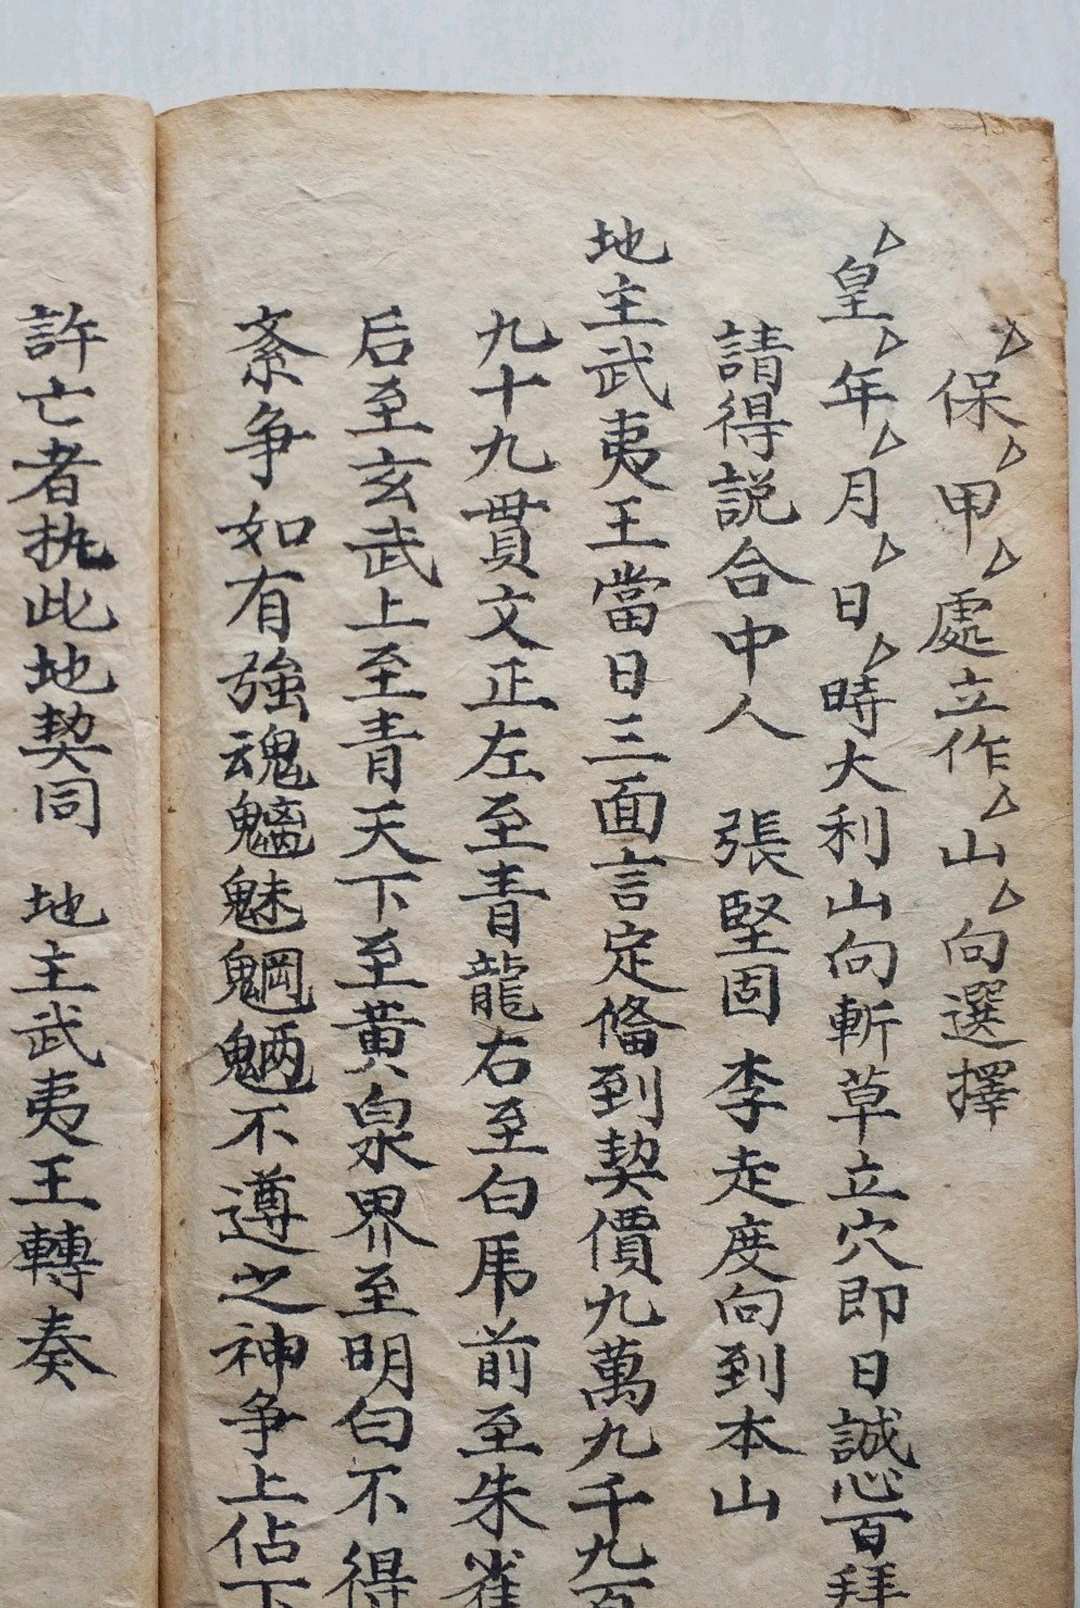 保甲處立作山向選擇
皇年月日時大利山向斬草立穴即日誠心百拜
請得説合中人 張堅固 李走度向到本山
地主武夷王當日三面言定俻到契價九萬九千九百
九十九貫文正左至青龍右至白馬前至朱雀
后至玄武上至青天下至黄泉界至明白不得
紊争如有強魂魑魅魍魎不遵之神争上佔下
許亡者执此地契同 地主武夷王轉奏